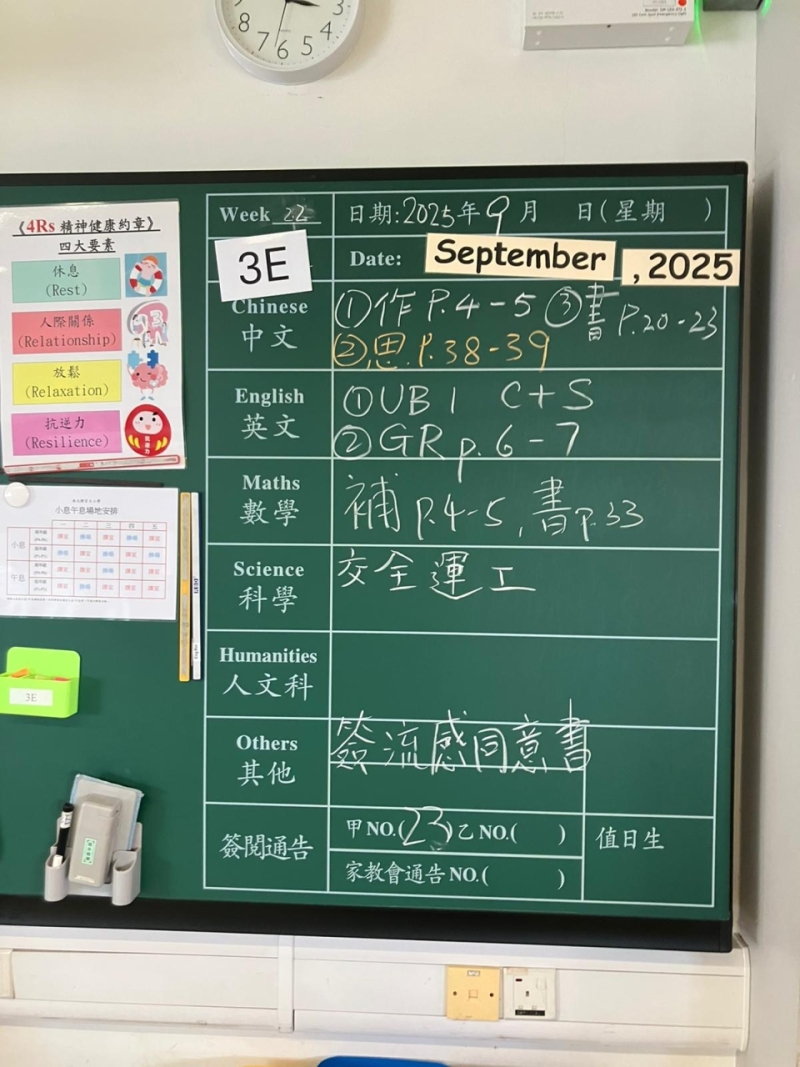 3
4
5
6
7
8
《4Rs 精神健康約章》
四大要素
休息
(Rest)
人際關係
(Relationship)
放鬆
(Relaxation)
抗逆力
(Resilience)
小息午息場地安排
一 二 三 四 五
小息
午息
3E
Week 22 日期:2025年9月 日(星期 )
3E
Date: September , 2025
Chinese
中文
①作 P.4-5 ③書 P.20-23
②思 P.38-39
English
英文
①UB1 C+S
②GR p.6-7
Maths
數學
補 P.4-5, 書 P.33
Science
科學
交全運工
Humanities
人文科
Others
其他
簽流感同意書
簽閱通告
甲NO.(23)乙NO.( )
家教會通告NO.( )
值日生